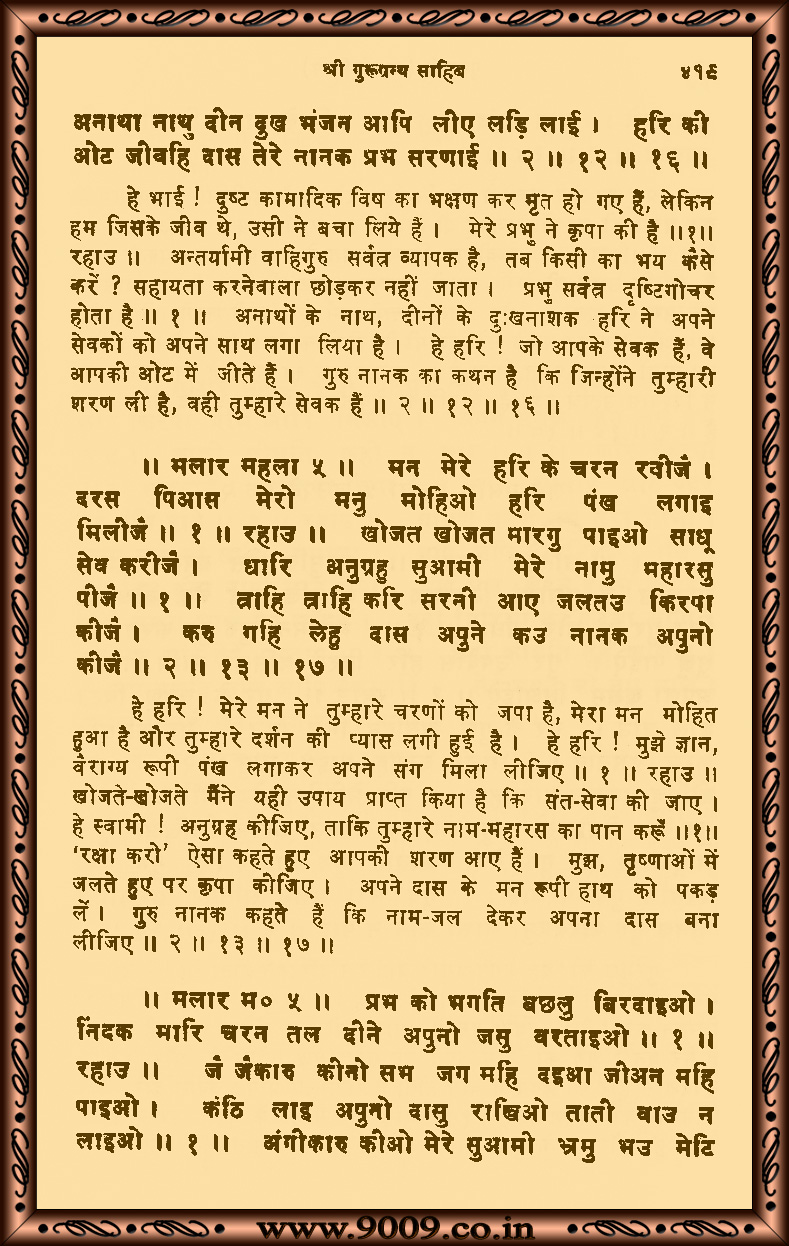 श्री गुरूग्रन्थ साहिब ४१९
अनाथा नाथु दीन दुख भंजन आपि लीए लड़ि लाई । हरि की
ओट जीवहि दास तेरे नानक प्रभ सरणाई ॥ २ ॥ १२ ॥ १६ ॥
हे भाई ! दुष्ट कामादिक विष का भक्षण कर मृत हो गए हैं, लेकिन
हम जिसके जीव थे, उसी ने बचा लिये हैं । मेरे प्रभु ने कृपा की है ॥१॥
रहाउ ॥ अन्तर्यामी वाहिगुरु सर्वत्र व्यापक है, तब किसी का भय कैसे
करें ? सहायता करनेवाला छोड़कर नहीं जाता । प्रभु सर्वत्र दृष्टिगोचर
होता है ॥ १ ॥ अनाथों के नाथ, दीनों के दुःखनाशक हरि ने अपने
सेवकों को अपने साथ लगा लिया है । हे हरि ! जो आपके सेवक हैं, वे
आपकी ओट में जीते हैं । गुरु नानक का कथन है कि जिन्होंने तुम्हारी
शरण ली है, वही तुम्हारे सेवक हैं ॥ २ ॥ १२ ॥ १६ ॥
॥ मलार महला ५ ॥ मन मेरे हरि के चरन रवीजै ।
दरस पिआस मेरो मनु मोहिओ हरि पंख लगाइ
मिलीजै ॥ १ ॥ रहाउ ॥ खोजत खोजत मारगु पाइओ साधू
सेव करीजै । धारि अनुग्रहु सुआमी मेरे नामु महारसु
पीजै ॥ १ ॥ त्राहि त्राहि करि सरनी आए जलतउ किरपा
कीजै । करु गहि लेहु दास अपुने कउ नानक अपुनो
कीजै ॥ २ ॥ १३ ॥ १७ ॥
हे हरि ! मेरे मन ने तुम्हारे चरणों को जपा है, मेरा मन मोहित
हुआ है और तुम्हारे दर्शन की प्यास लगी हुई है । हे हरि ! मुझे ज्ञान,
वैराग्य रूपी पंख लगाकर अपने संग मिला लीजिए ॥ १ ॥ रहाउ ॥
खोजते-खोजते मैंने यही उपाय प्राप्त किया है कि संत-सेवा की जाए ।
हे स्वामी ! अनुग्रह कीजिए, ताकि तुम्हारे नाम-महारस का पान करूँ ॥१॥
‘रक्षा करो’ ऐसा कहते हुए आपकी शरण आए हैं । मुझ, तृष्णाओं में
जलते हुए पर कृपा कीजिए । अपने दास के मन रूपी हाथ को पकड़
लें । गुरु नानक कहते हैं कि नाम-जल देकर अपना दास बना
लीजिए ॥ २ ॥ १३ ॥ १७ ॥
॥ मलार म० ५ ॥ प्रभ को भगति बछलु बिरदाइओ ।
निंदक मारि चरन तल दीने अपुनो जसु वरताइओ ॥ १ ॥
रहाउ ॥ जै जैकारु कीनो सभ जग महि दइआ जीअन महि
पाइओ । कंठि लाइ अपुनो दासु राखिओ ताती वाउ न
लाइओ ॥ १ ॥ अंगीकारु कीओ मेरे सुआमी भ्रमु भउ मेटि
www.9009.co.in